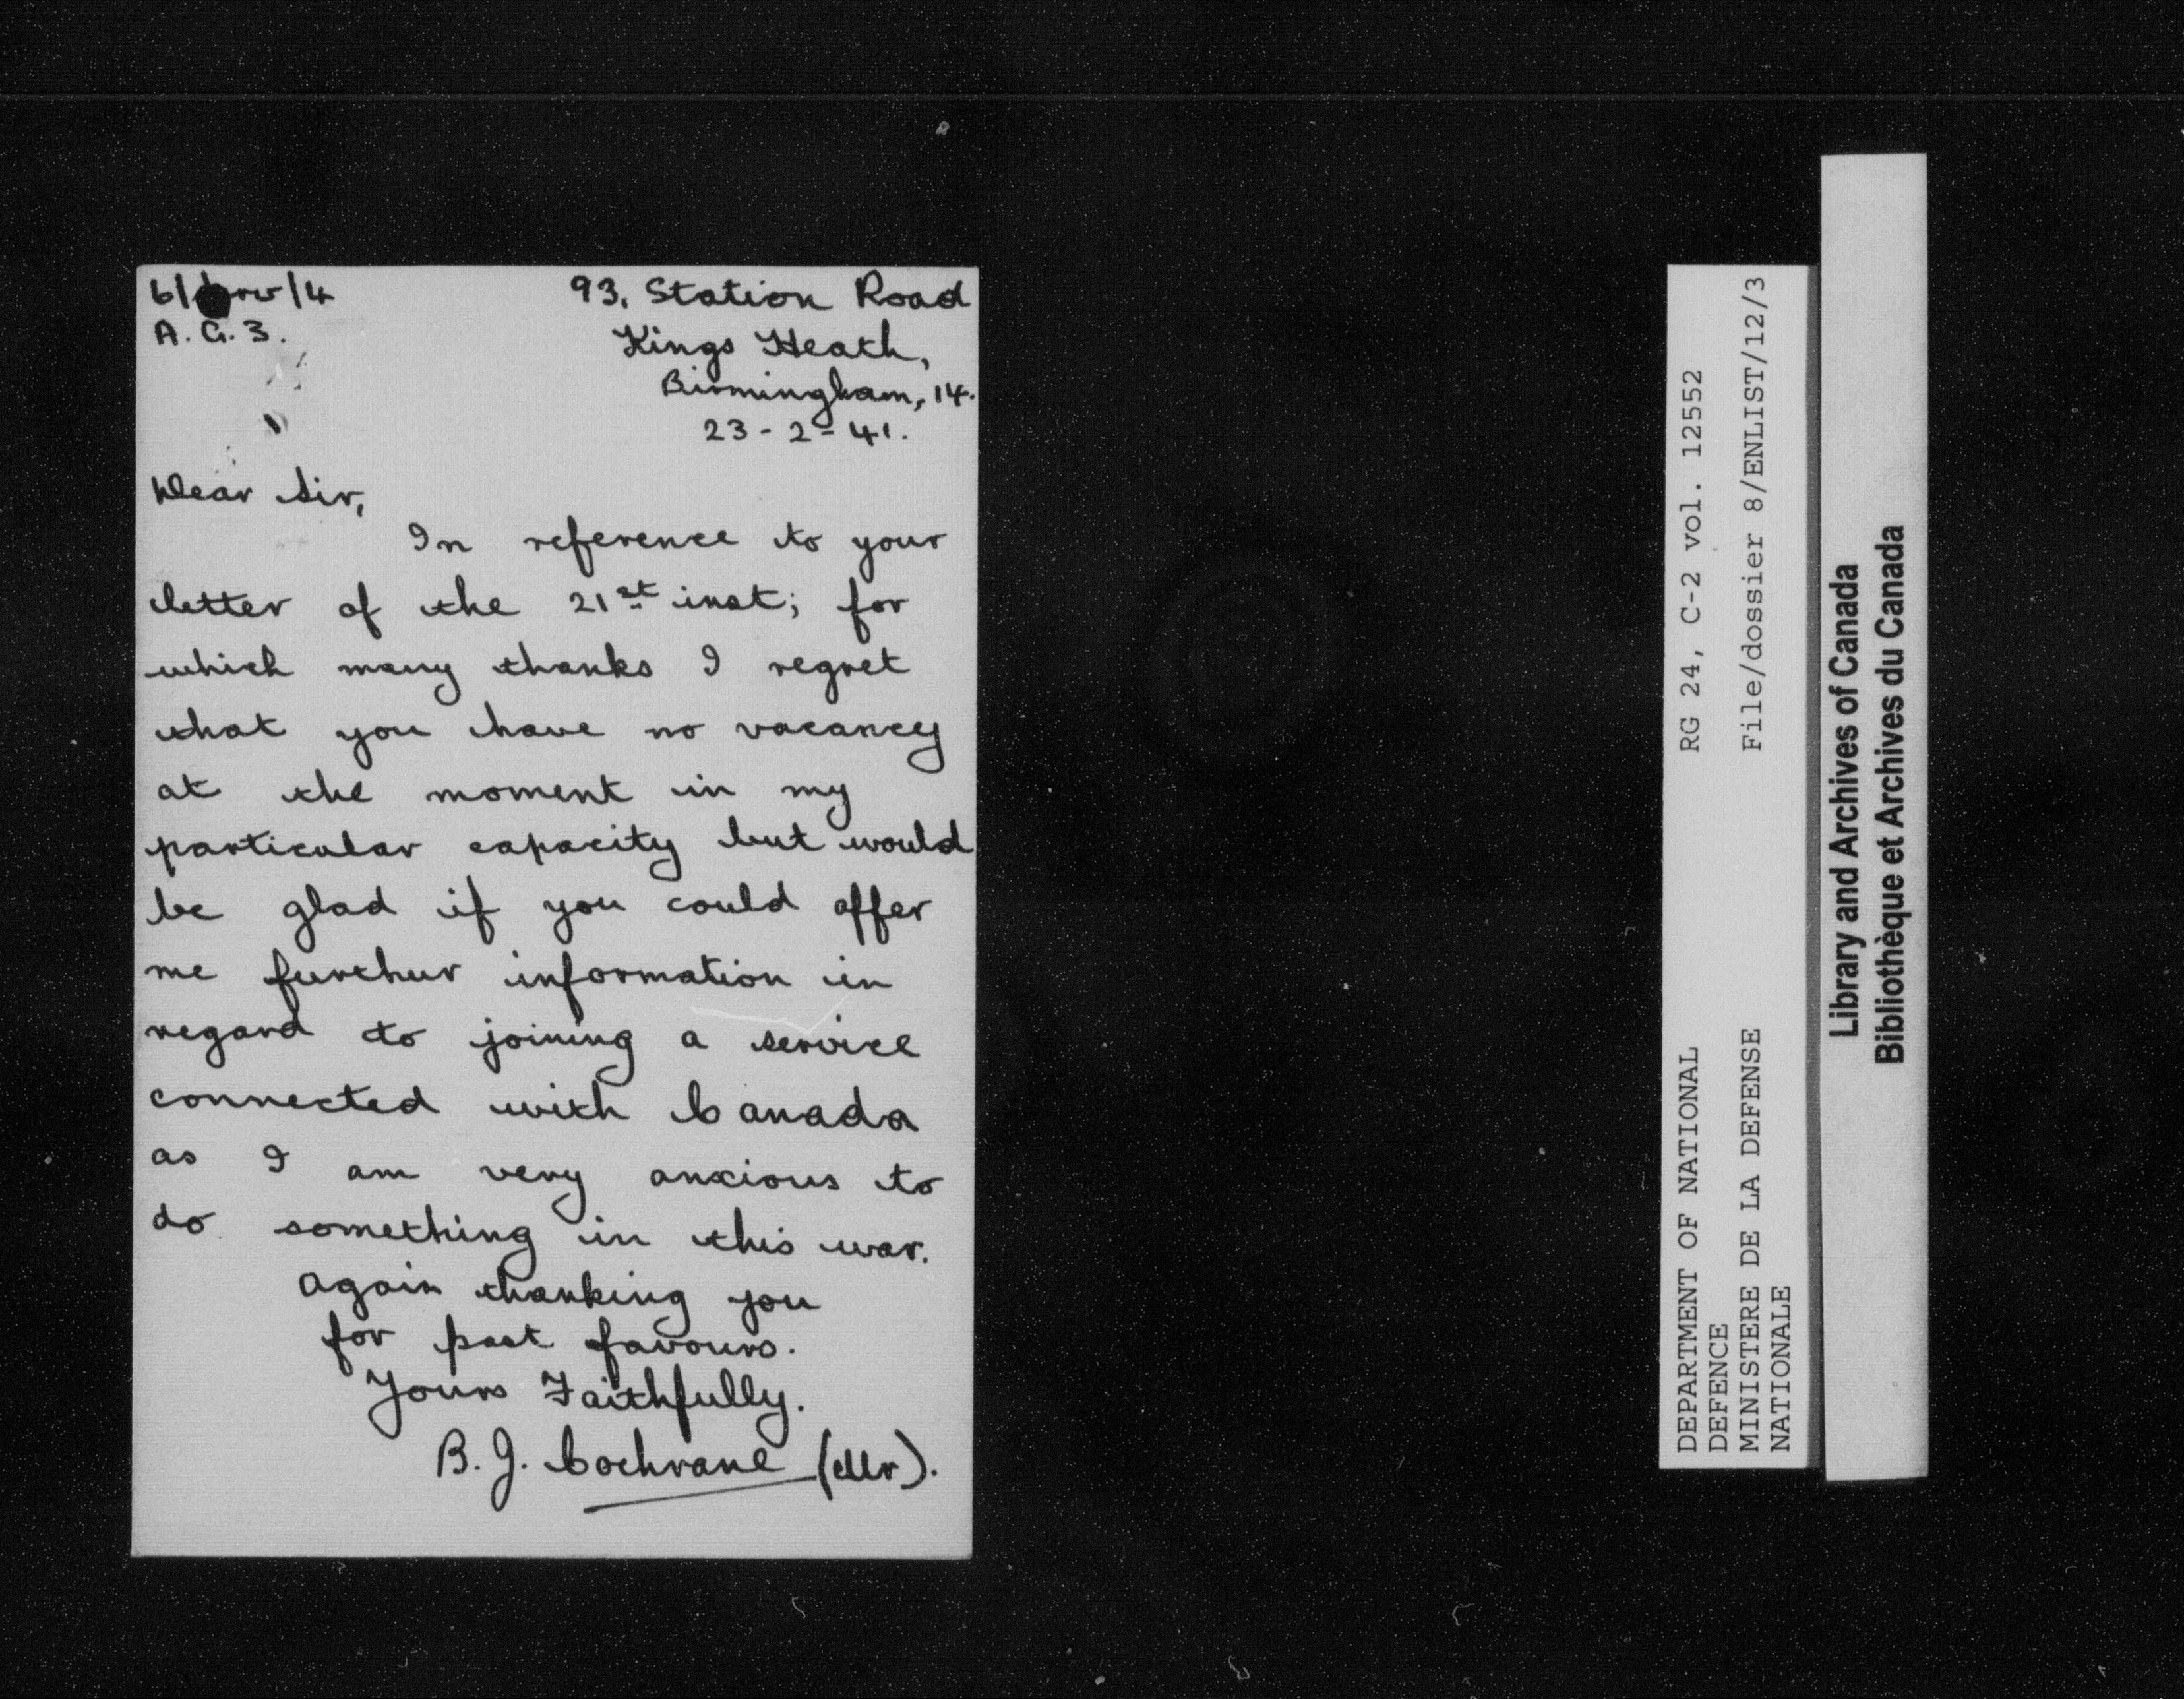 93, Station Road
A.G.3.
Kings Heath,
Birmingham, 14.
23-2-41.
Dear Sir,
In reference to your
letter of the 21st inst; for
which many thanks I regret
that you have no vacancy
at the moment in my
particular capacity but would
be glad if you could offer
me further information in
regard to joining a service
connected with Canada
as I am very anxious to
do something in this war.
Again thanking you
for past favours.
Yours Faithfully.
B.J. Cochrane (Mr).
DEPARTMENT OF NATIONAL RG 24, C-2 vol. 12552
DEFENCE
MINISTERE DE LA DEFENSE File/dossier 8/ENLIST/12/3
NATIONALE
Library and Archives of Canada
Bibliothèque et Archives du Canada